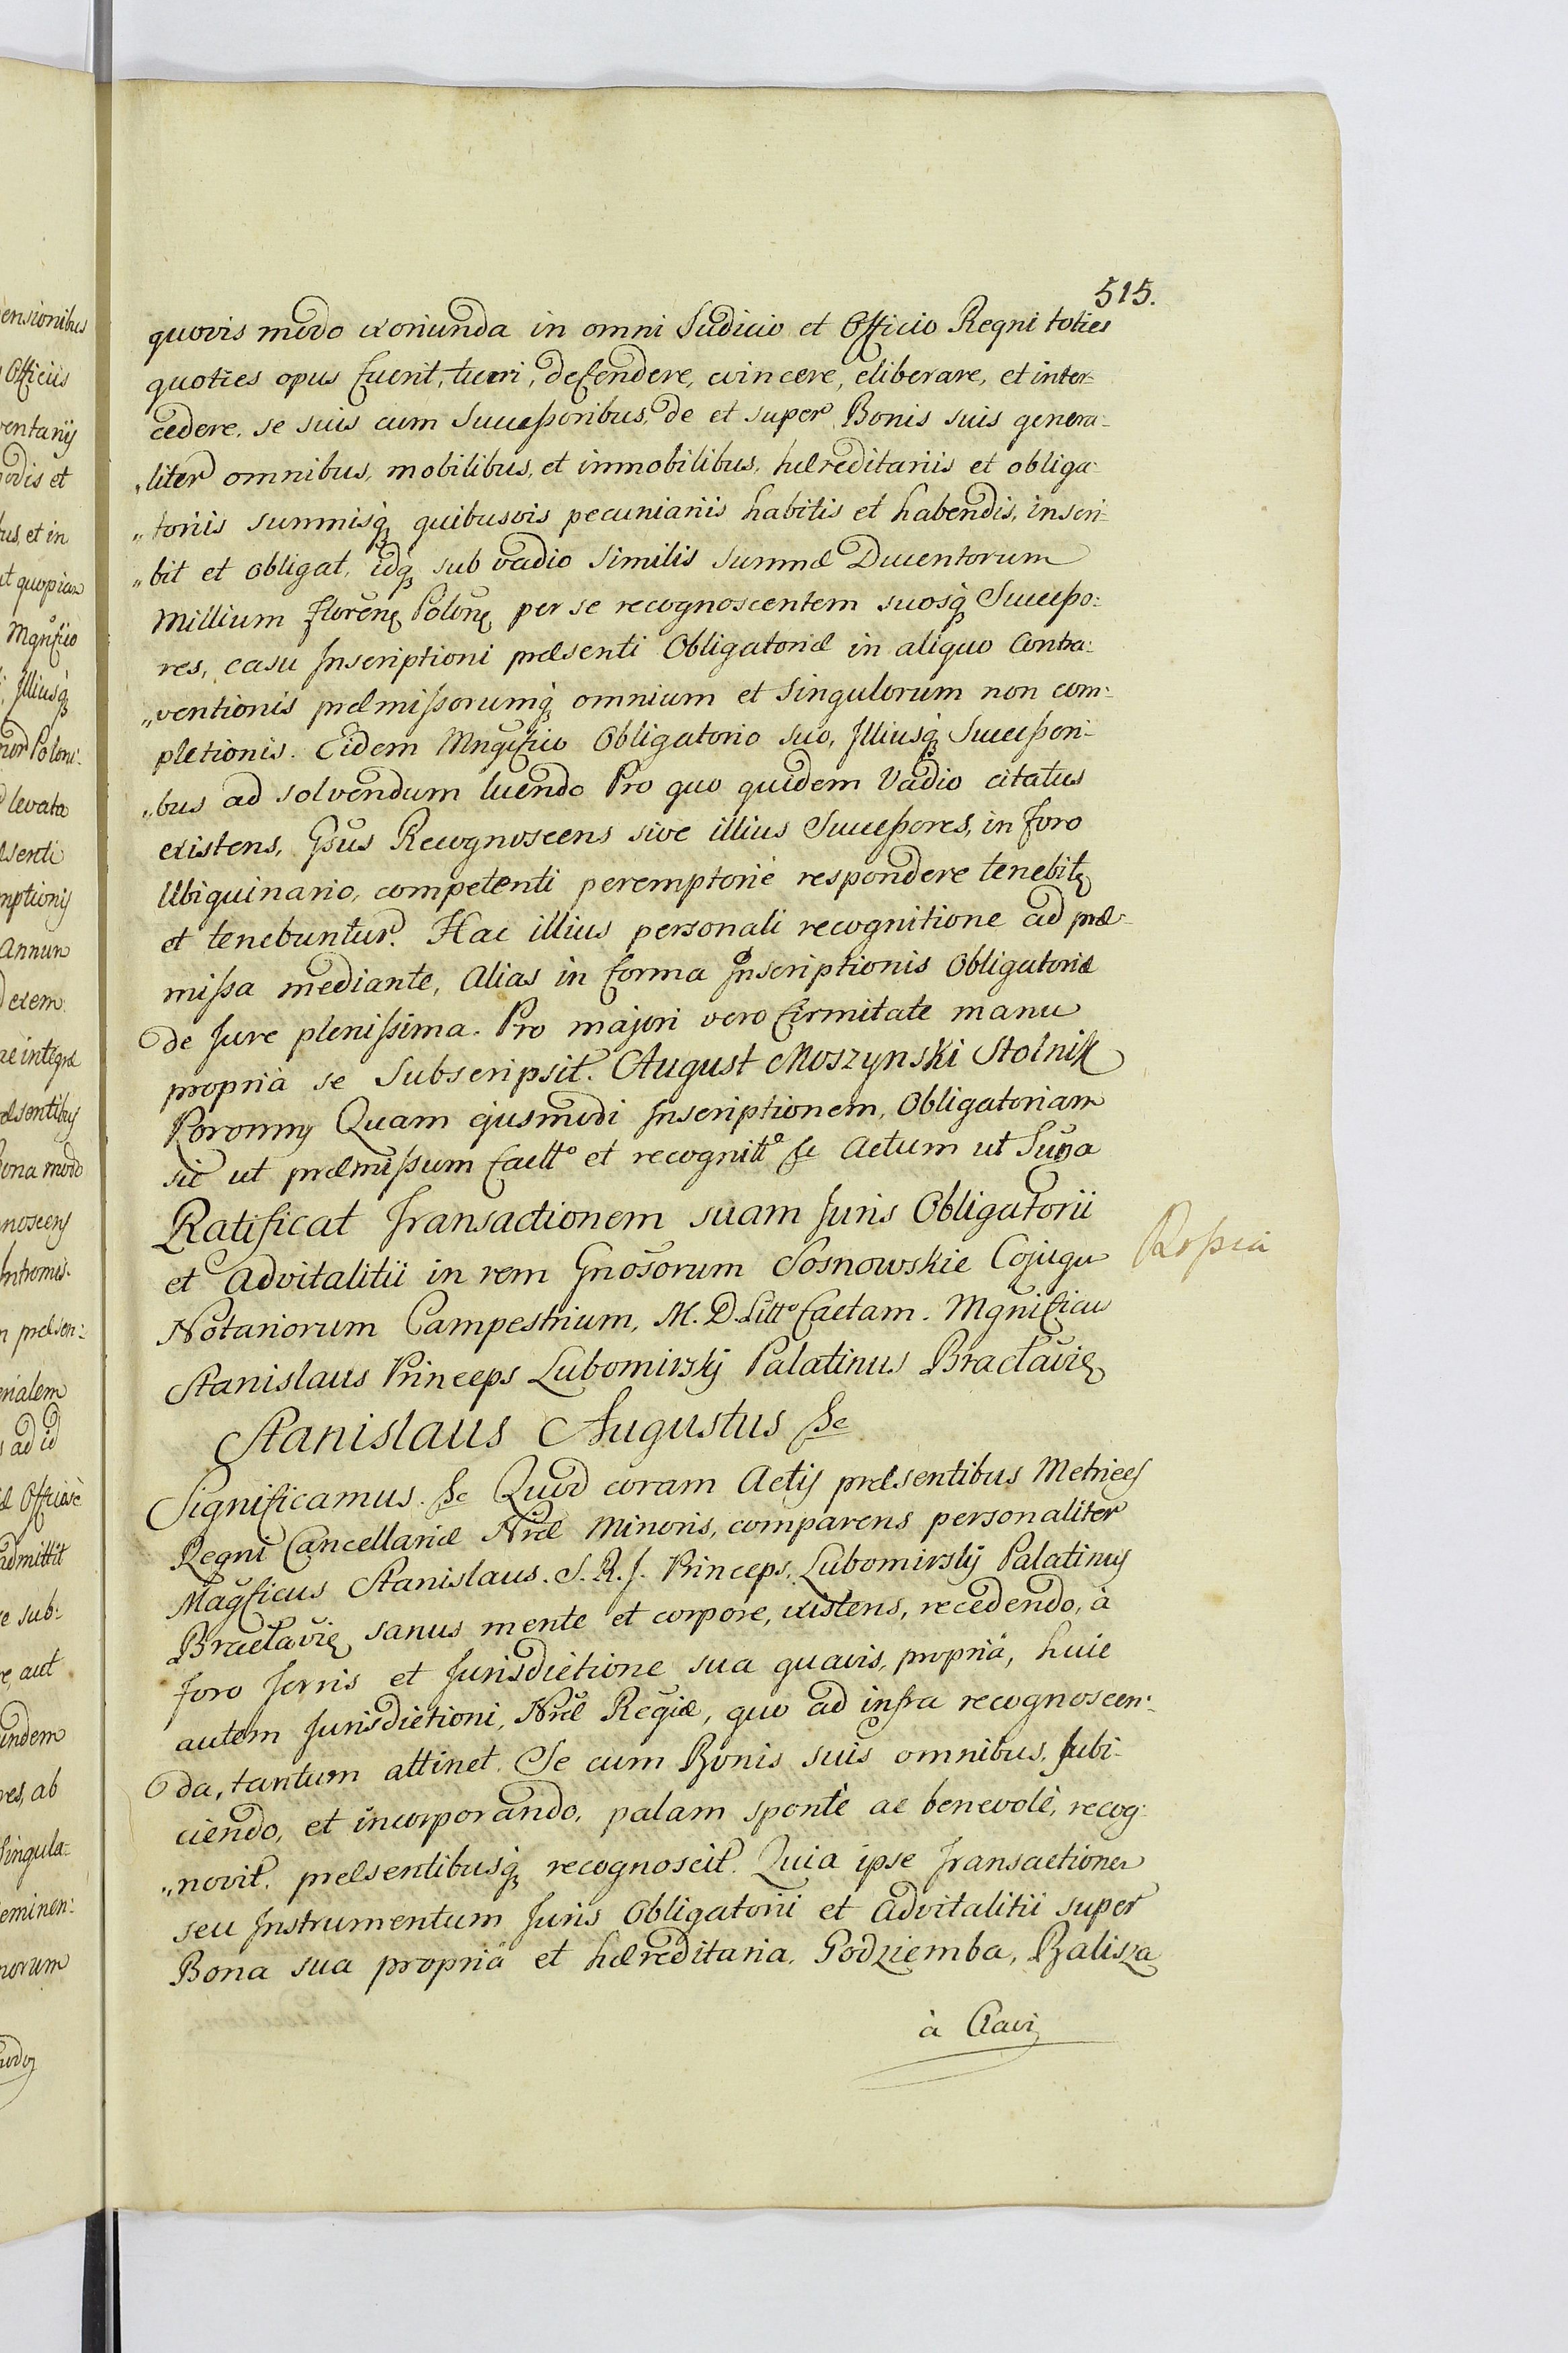 515.
quovis modo exoriunda in omni Judicio et Officio Regni toties
quoties opus fuerit, tueri, defendere, evincere, eliberare, et inter-
cedere. se suis cum Successoribus, de et super Bonis suis genera-
„liter omnibus, mobilibus, et immobilibus, hæreditariis et obliga-
„toriis summisq; quibusvis pecuniariis habitis et habendis, inscri-
„bit et obligat, idq; sub vadio similis summæ Ducentorum
Millium floreñ Poloñ per se recognoscentem suosq; Successo:
res, casu Inscriptioni præsenti Obligatoriæ in aliquo Contra:
„ventionis præmissorumq; omnium et singulorum non com:
pletionis. Eidem Mngfico Obligatorio suo, Illiusq; Successori-
„bus ad solvendum luendo Pro quo quidem Vadio citatus
existens, Ipsus Recognoscens sive illius Successores, in foro
Ubiquinario, competenti peremptoriè respondere tenebit
et tenebuntur. Hac illius personali recognitione ad præ-
missa mediante, Alias in forma Inscriptionis Obligatoriæ
de Jure plenissima. Pro majori vero firmitate manu
propriâ se Subscripsit. August Moszynski Stolnik
Koronny Quam ejusmodi Inscriptionem, Obligatoriam
sic ut præmissum factt° et recognitt° &c Actum ut Supra
Ratificat Transactionem suam Juris Obligatorii
et Advitalitii in rem Gnosorum Sosnowskie Cojugu
Notariorum Campestrium, M. D. Litt° factam. Mgnificus
Stanislaus Princeps Lubomirskij Palatinus Bracłavię
Stanislaus Augustus &c
Significamus. &c Quod coram Actis præsentibus Metrices
Regni Cancellariæ Nræ Minoris, comparens personaliter
Magficus Stanislaus. S. R. J. Princeps, Lubomirskij Palatinus
Bracłavię sanus mente et corpore, existens, recedendo, à
foro Terris et Jurisdictione sua quavis, propriâ, huic
autem Jurisdictioni, Nræ Regiæ, quo ad infra recognoscen:
da, tantum attinet. Se cum Bonis suis omnibus, subi-
ciendo, et incorporando, palam spontè ac benevolè, recog:
„novit. præsentibusq; recognoscit. Quia ipse Transactionem
seu Instrumentum Juris Obligatorii et Advitalitii super
Bona sua propriâ et hæreditaria. Godziemba, Balisza